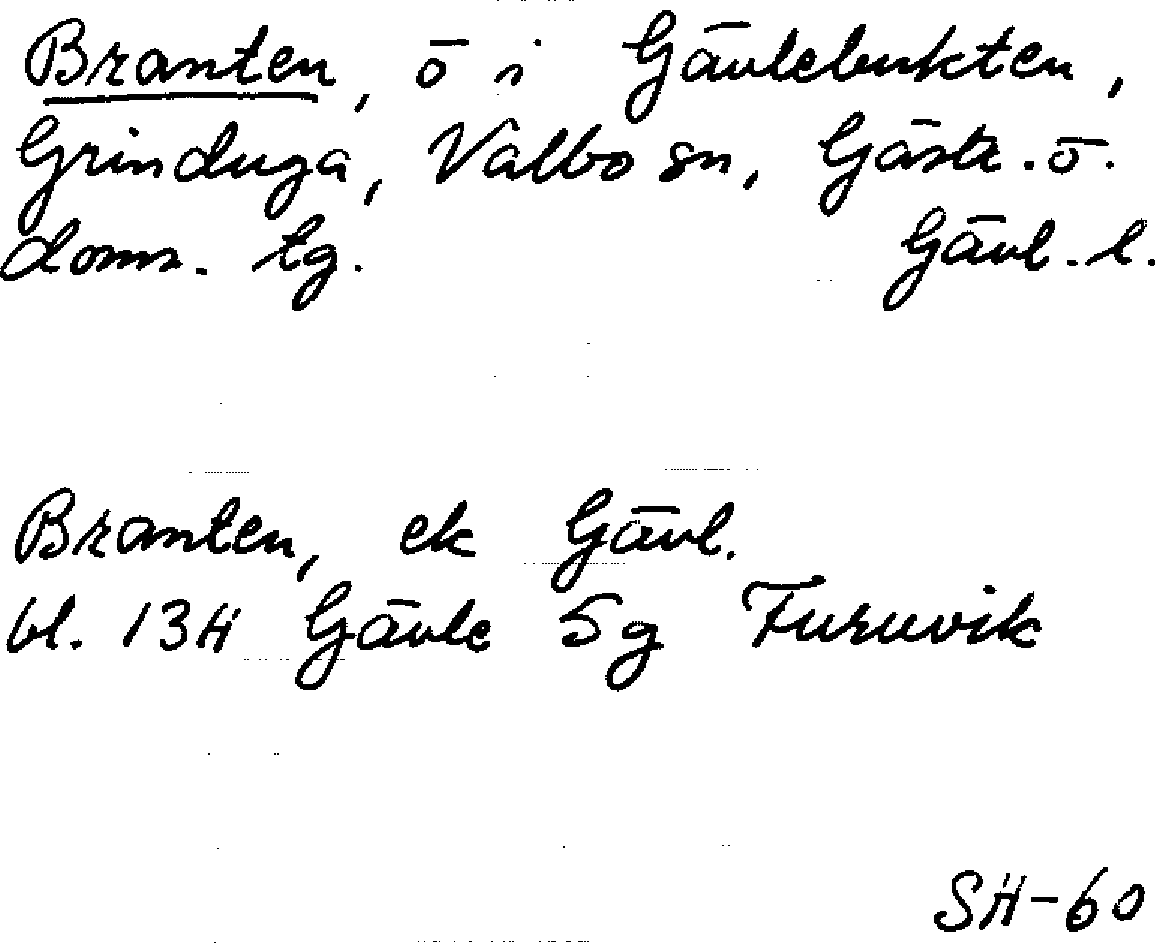 Branten, ö i Gävlebukten,
Grinduga, Valbo sn, Gästr. ö.
doms. tg. Gävl. l.
Branten, ek Gävl.
bl. 13H Gävle 5g Furuvik
SH-60